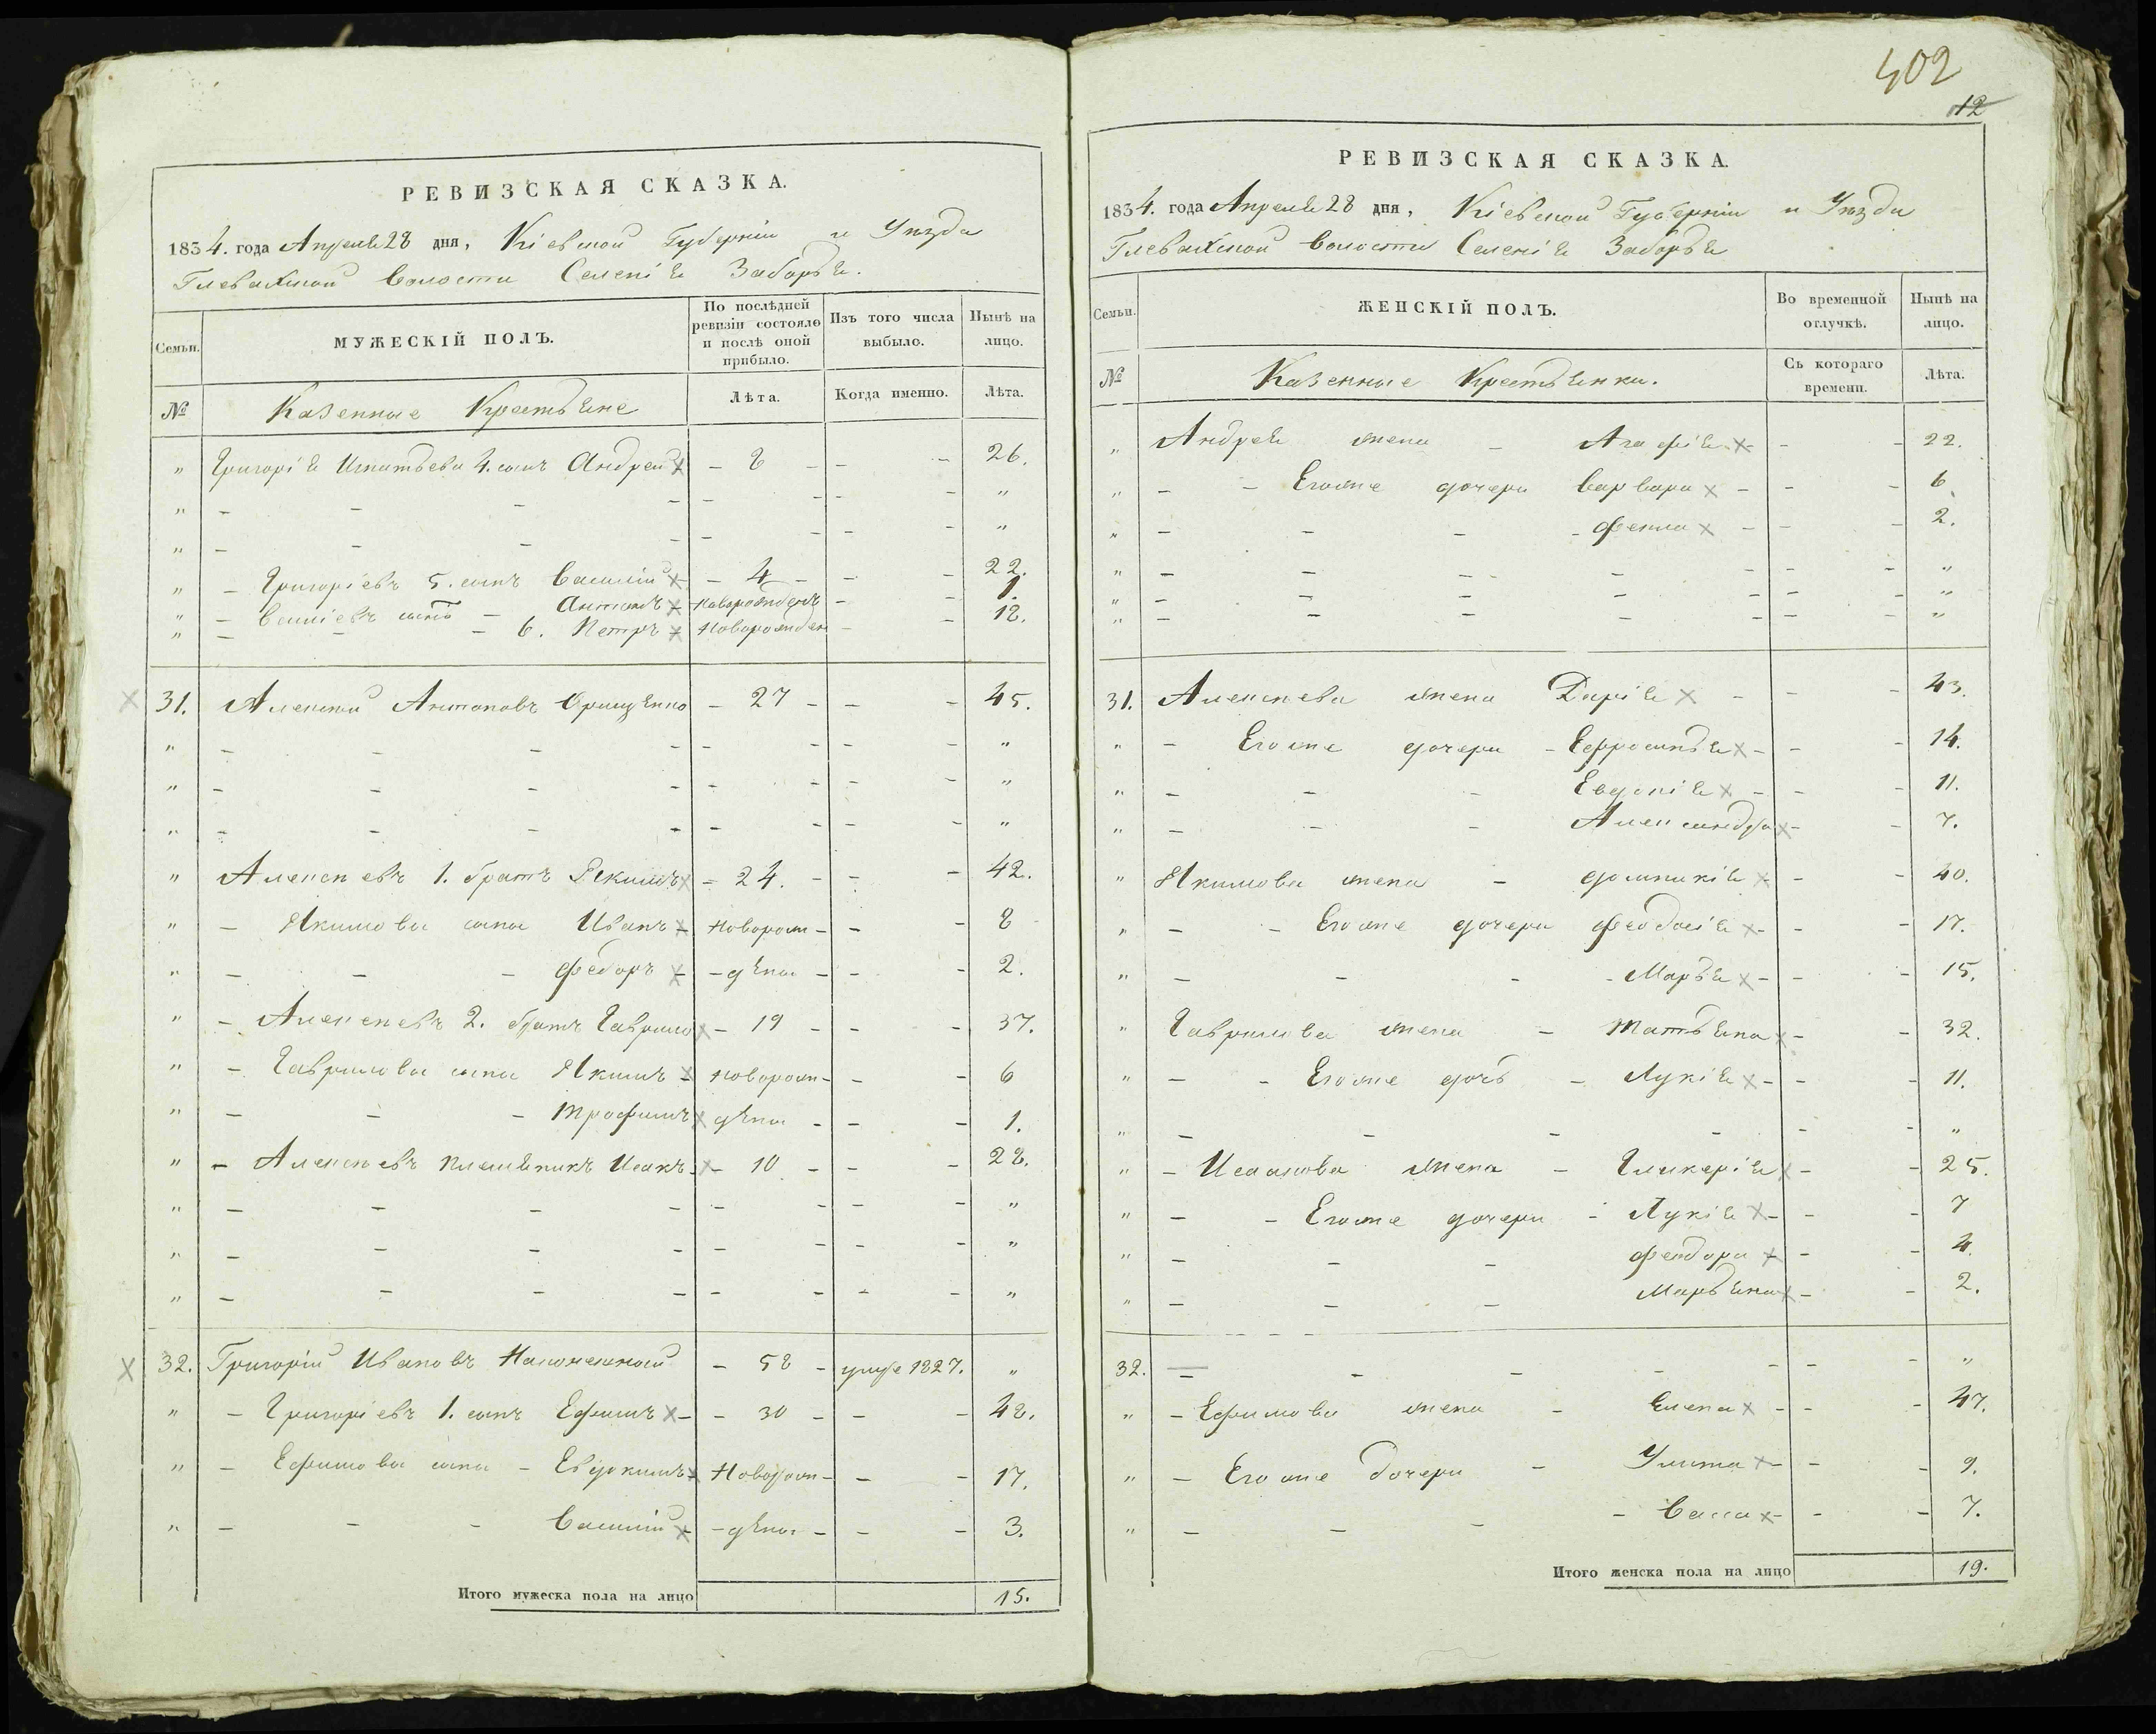 РЕВИЗСКАЯ СКАЗКА.
1834. года Апреля 28 дня, Кіевской Губерніи и Уезда
Глевахской Волости Селенія Заборья.
Семьи. МУЖЕСКІЙ ПОЛЪ. По послѣдней ревизіи состояло и послѣ оной прибыло. Изъ того числа выбыло. Нынѣ на лицо.
№ Казенные Крестьяне Лѣта. Когда именно. Лѣта.
" Григорія Игнатьева 4. сынъ Андрей × - 8 - - - 26.
" - - - - - - - - "
" - - - - - - - - "
" - Григоріевъ 5. сынъ Василій × - 4 - - - 22.
" - Василіевъ сынъ - Антонъ × новорожденъ - - 1.
" - - - 6. Петръ × Новорожден - - 12.
31. Алексей Антоновъ Орищенко - 27 - - - 45.
" - - - - - - - - "
" - - - - - - - - "
" - - - - - - - - "
" Алексеевъ 1. братъ Якимъ × - 24. - - - 42.
" - Якимова сына Иванъ × новорож- - - 8
" - - - Федоръ × - дѣна - - - 2.
" - Алексеевъ 2. братъ Гаврило × - 19 - - - 37.
" - Гаврилова сына Якимъ × новорож- - - 6
" - - - Трофимъ × дѣна - - - 1.
" - Алексеевъ племяникъ Исакъ × - 10 - - - 28.
" - - - - - - - - "
" - - - - - - - - "
" - - - - - - - - "
32. Григорій Ивановъ - 58 - умре 1827. "
" - Григоріевъ 1. сынъ Ефимъ × - 30 - - - 48.
" - Ефимова сына - Евдокимъ × Новорож- - - 17.
" - - - Василій × - дѣна - - - 3.
Итого мужеска пола на лицо 15.
402
12
РЕВИЗСКАЯ СКАЗКА.
1834. года Апреля 28 дня, Кіевской Губерніи и Уезда
Глевахской Волости Селенія Заборья
Семьи. ЖЕНСКІЙ ПОЛЪ. Во временной отлучкѣ. Нынѣ на лицо.
№ Казенные Крестьянки. Съ котораго времени. Лѣта.
" Андрея жена - Агафія × - - 22.
" - - Егоже дочери Варвара × - - - 6
" - - - - Фекла × - - - 2.
" - - - - - - - "
" - - - - - - - "
" - - - - - - - "
31. Алексеева жена Дарія × - - - 43.
" - Егоже дочери - Ефросинья × - - - 14.
" - - - Евдокія × - - - 11.
" - - - Александра × - - 7.
" Якимова жена - Домникія × - - 40.
" - - Егоже дочери Феодосія × - - - 17.
" - - - - Марья × - - - 15.
" Гаврилова жена - Татьяна × - - 32.
" - - Егоже дочь - Лукія × - - - 11.
" - - - - - - "
" - Исакова жена - Гликерія × - - 25.
" - - Егоже дочери - Лукія × - - - 7
" - - - Феодора × - - 4.
" - - - Марьяна × - - 2.
32. - - - - - - - "
" - Ефимова жена - Елена × - - - 47.
" - Егоже дочери - Улита × - - - 9.
" - - - - Васса × - - - 7.
Итого женска пола на лицо 19.